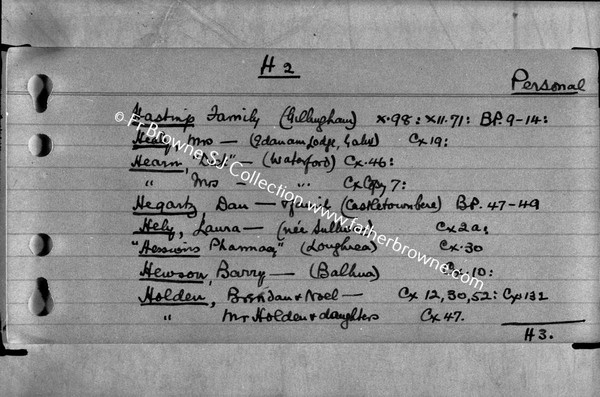 H 2
Personal
Hastings Family (Gillingham) X.98: XII.71: B.P. 9-14:
Mrs — Lodge, Cx 19:
Hearn "Dick" — (Waterford) Cx.46:
" Mrs — " Cx Copy 7:
Hegarty Dan — & family (Castletownbere) B.P. 47-49
Hely, Laura — (née Sullivan) Cx 2a;
Pharmacy (Loughrea) Cx.30
Hewson, Barry — (Balhua) 10:
Holden, Brendan & Noel — Cx 12, 30, 52: Cxp 132
" Mr Holden & daughters Cx 47.
H3.
© Fr Browne SJ Collection www.fatherbrowne.com